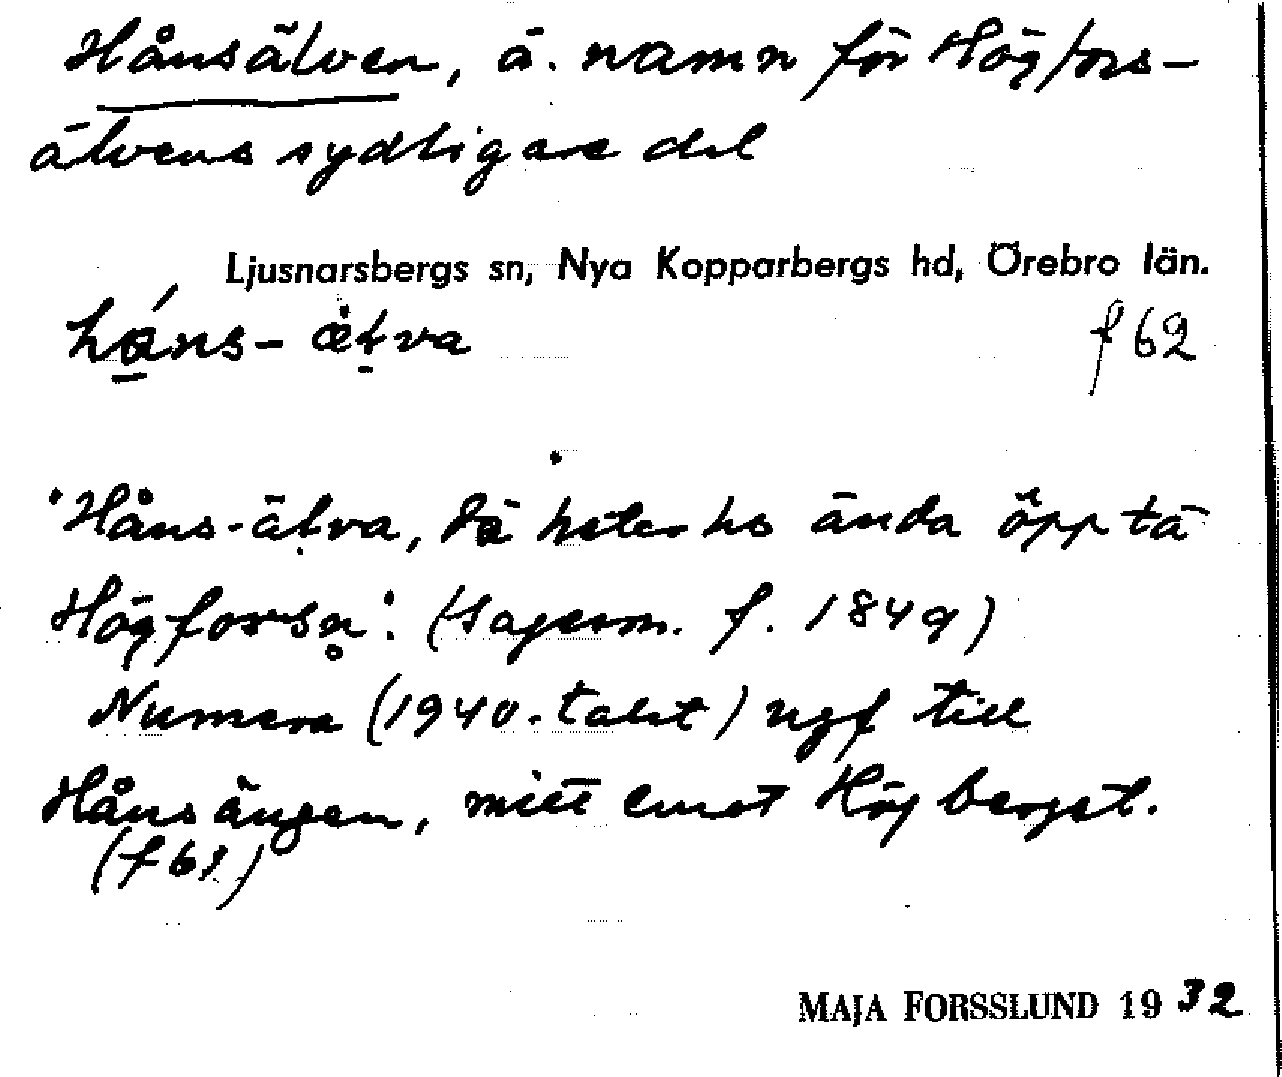 Hånsälven, ä. namn för Högfors-
älvens sydligare del
Ljusnarsbergs sn, Nya Kopparbergs hd, Örebro län.
håns-älva f 62
"Håns-älva, dä heter ho ända öpp tä
Högforsn". (Sagesm. f. 1849)
Numera (1940-talet) ngf till
Hånsängen, mitt emot Högberget.
(f 61)
MAJA FORSSLUND 1932